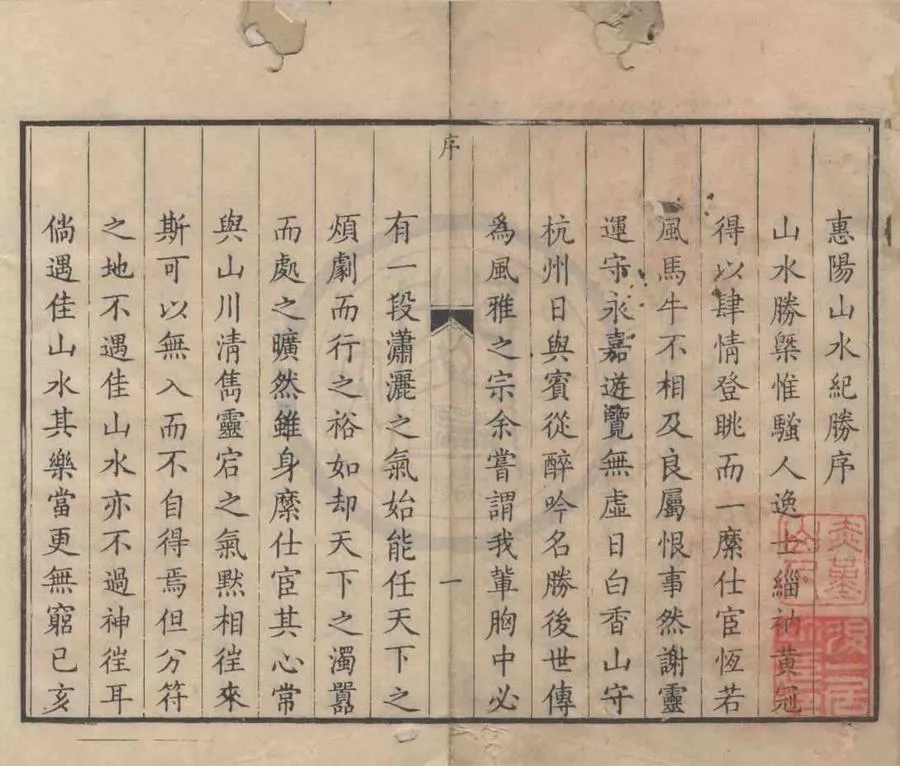 惠陽山水紀勝序
山水勝槩惟騷人逸士緇衲黃冠
得以肆情登眺而一縻仕宦恆若
風馬牛不相及良屬恨事然謝靈
運守永嘉遊覽無虛日白香山守
杭州日與賓從醉吟名勝後世傳
為風雅之宗余嘗謂我輩胸中必
序
一
有一段瀟灑之氣始能任天下之
煩劇而行之裕如却天下之濁嚣
而處之曠然雖身縻仕宦其心常
與山川清雋靈宕之氣默相徃來
斯可以無入而不自得焉但分符
之地不遇佳山水亦不過神徃耳
倘遇佳山水其樂當更無窮已亥